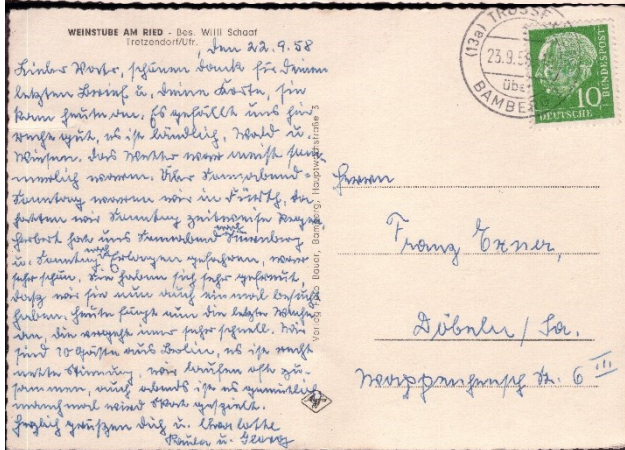 WEINSTUBE AM RIED - Bes. Willi Schaaf
Tretzendorf/Ufr.
den 22.9.58
Lieber Vater, schönen Dank für Deinen
letzten Brief u. deine Karte, sie
kam heute an. Es gefällt uns hier
recht gut, es ist ländlich, Wald u.
Wiesen. Das Wetter war meist som-
merlich warm. Über Sonnabend-
Sonntag waren wir in Fürth, da
hatten wir Sonntag zeitweise Regen,
Herbert hat uns Sonnabend nach Nürnberg
u. Sonntag nach Erlangen gefahren, war
sehr schön. Sie haben sich sehr gefreut,
dasz wir sie nun auch einmal besucht
haben. Heute fängt nun die letzte Woche
an, die vergeht immer sehr schnell. Wir
sind 10 Gäste aus Berlin, es ist recht
nette Stimmung, wir laufen oft zu-
sammen, auch abends ist es gemütlich
manchmal wird Skat gespielt.
Herzlich grüszen dich u. Charlotte
Paula u. Georg
Verlag Foto Bauer, Bamberg, Hauptwachstraße 3
Agfa
(13a) TROSSE
23.9.58
über
BAMBERG
10
DEUTSCHE
BUNDESPOST
Herrn
Franz Exner,
Döbeln / Sa.
Wappenhensch Str. 6 III